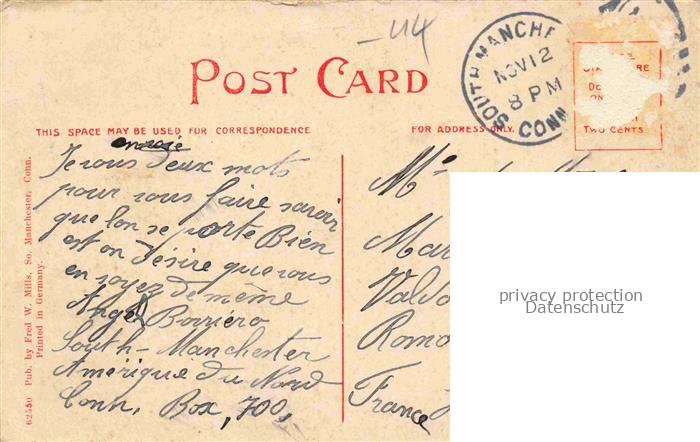 -44
POST CARD
SOUTH MANCHE
NOV 12
8 PM
CONN
TWO CENTS
THIS SPACE MAY BE USED FOR CORRESPONDENCE
FOR ADDRESS ONLY.
envoie
Je vous deux mots
pour vous faire savoir
que lon se porte Bien
est on désire que vous
en soyez de même
Ange Borriero
South-Manchester
Amérique du Nord
Conn. Box, 700,
M
Mar
Valdo
Roma
France
62550 Pub. by Fred W. Mills, So. Manchester, Conn.
Printed in Germany.
privacy protection
Datenschutz